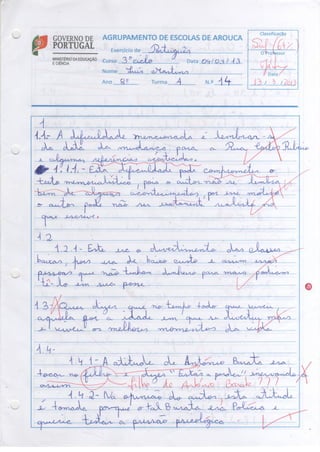 GOVERNO DE
PORTUGAL
MINISTÉRIO DA EDUCAÇÃO
E CIÊNCIA
AGRUPAMENTO DE ESCOLAS DE AROUCA
Exercício de Português
Curso 3º ciclo Data 04/03/13
Nome Luís Martins
Ano 8º Turma A N.º 14
Classificação
O Professor
Data
1
1.1- A dificuldade mencionada é lembrar-se
da data da mudança para a Rua Carlos Ribeiro
e algumas referências
1.1.1. - Esta dificuldade pode comprometer o
texto memorialístico, pois o autor não se lembra
bem de alguns acontecimentos, por esse motivo
o autor pode não ser realista no
que escreve.
1.2
1.2.1- Este era o divertimento das classes
baixas, pois era de baixo custo e assim essas
pessoas que não tinham dinheiro para mais podiam
tê-lo em sua posse
1.3- Quer dizer que no tempo todo que viveu
aquela foi a idade em que se divertiu mais
e viveu os melhores momentos da vida
1.4-
1.4.1- A atitude de António Burata era
tocar no filho e dizer "Estás a perder"
assim filho de António Burata ???
1.4.2- Na opinião do autor, esta atitude
é tomada porque o tal Burata era Polícia e
queria testar a pressão psicológica